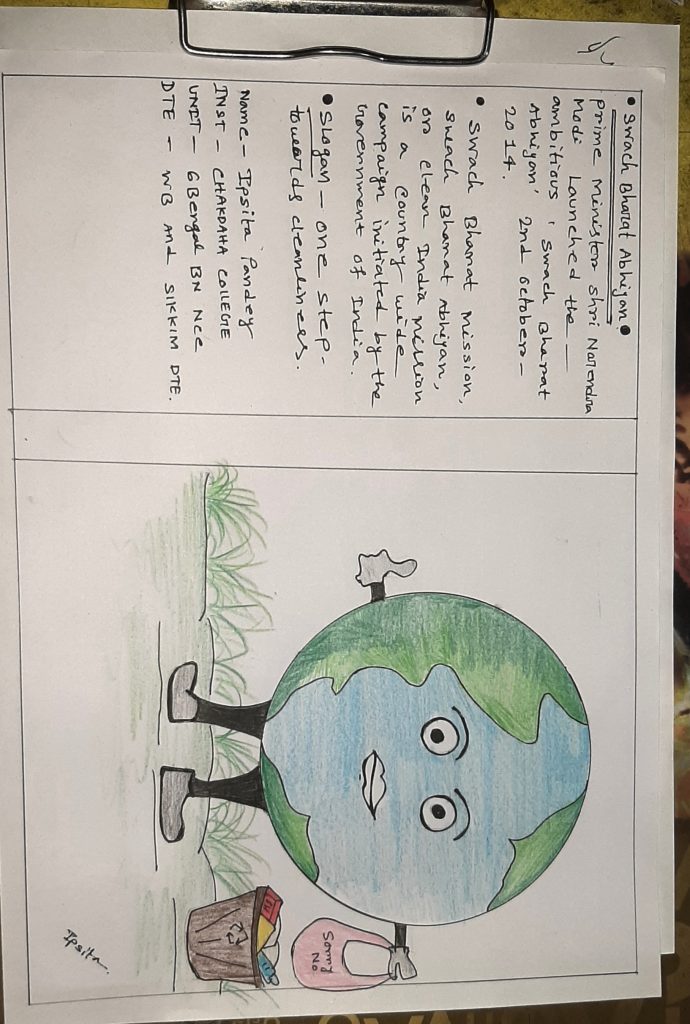 • Swach Bharat Abhiyan •
Prime Minister Shri Narendra
Modi Launched the —
ambitious 'Swach Bharat
Abhiyan' 2nd October -
2014.
• Swach Bharat Mission,
Swach Bharat Abhiyan,
or clean India Mission
is a country wide
campaign initiated by the
Government of India.
• Slogan - one step -
towards cleanliness.
Name - Ipsita Pandey
INST - CHAKDAHA COLLEGE
UNIT - 6 Bengal BN Ncc
DTE - WB And SIKKIM DTE.
Sorry
No
Ipsita.